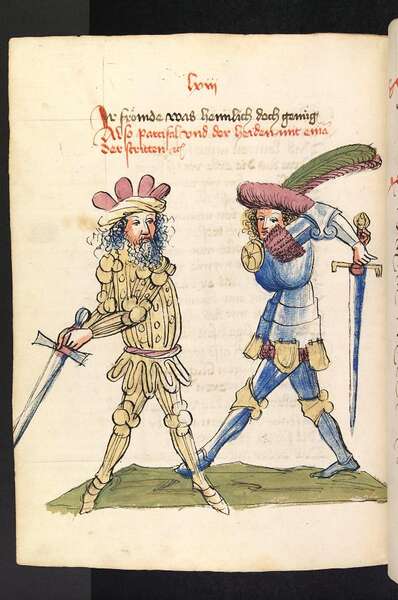 lxviij
Ir frömde was heimlich doch genůg
Also partifal vnd der heiden mit einā
der stritten